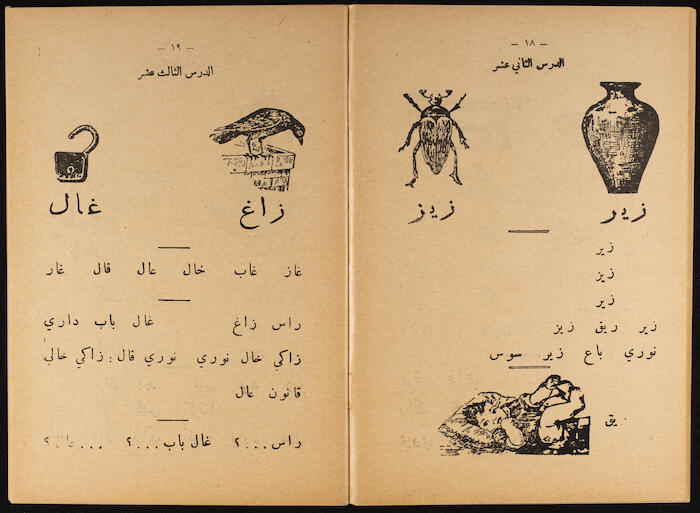 - ١٨ -
الدرس الثاني عشر
زير زيز
زير
زيز
زير
زير ريق زيز
نوري باع زير سوس
يق
- ١٩ -
الدرس الثالث عشر
زاغ غال
غاز غاب خال عال قال غار
راس زاغ غال باب داري
زاكي خال نوري نوري قال : زاكي خالي
قانون عال
راس ...؟ غال باب ...؟ ... عال ؟